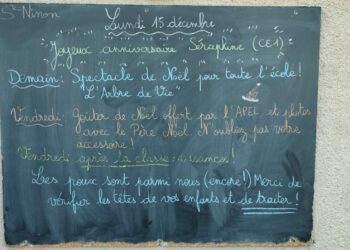 St Ninon
Lundi 15 décembre
Joyeux anniversaire Séraphine (CE1)
Demain : Spectacle de Noël pour toute l'école !
"L'Arbre de Vie"
Vendredi : Goûter de Noël offert par l'APEL et photos
avec le Père Noël. N'oubliez pas votre
accessoire !
Vendredi après la classe : vacances !
Les poux sont parmi nous (encore !) Merci de
vérifier les têtes de vos enfants et de traiter !